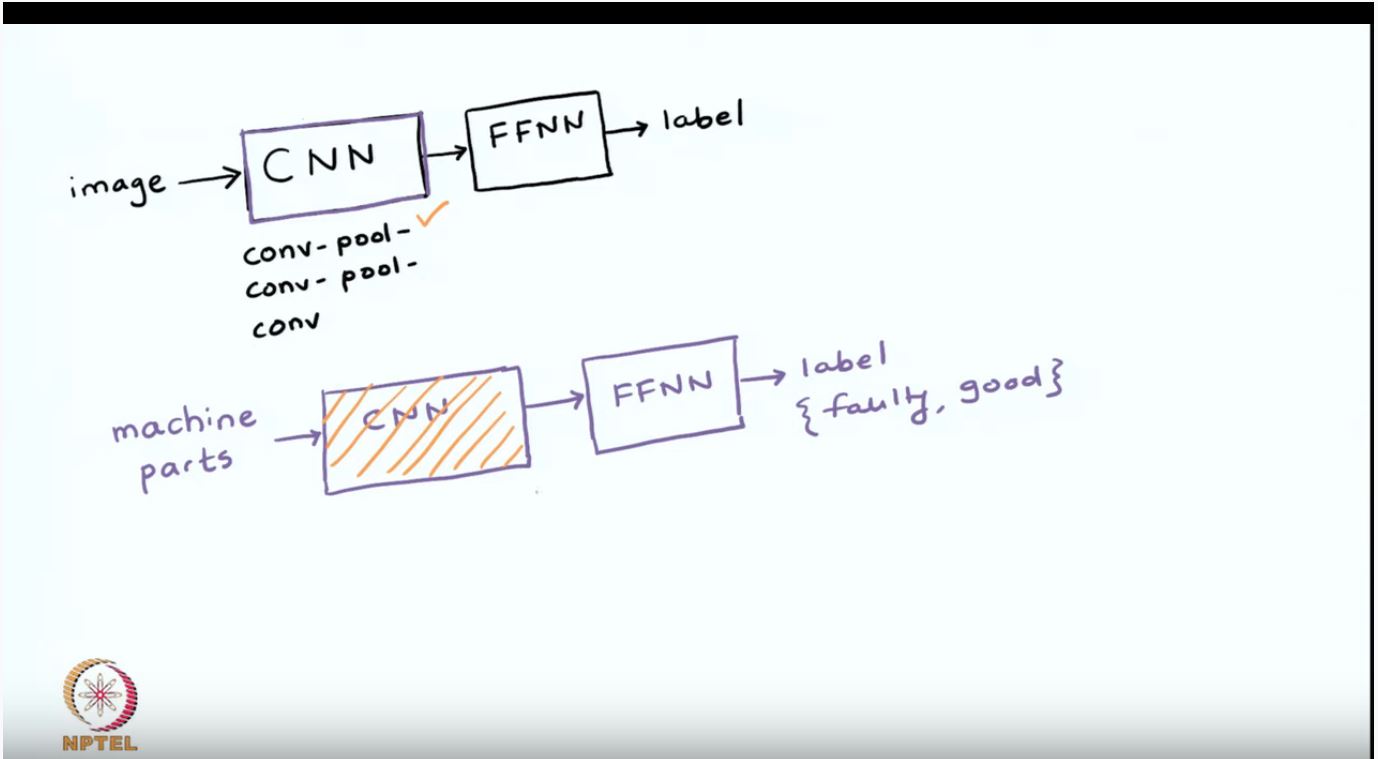 image → CNN → FFNN → label
conv-pool-
conv-pool-
conv
machine
parts
CNN
FFNN
label
{faulty, good}
NPTEL